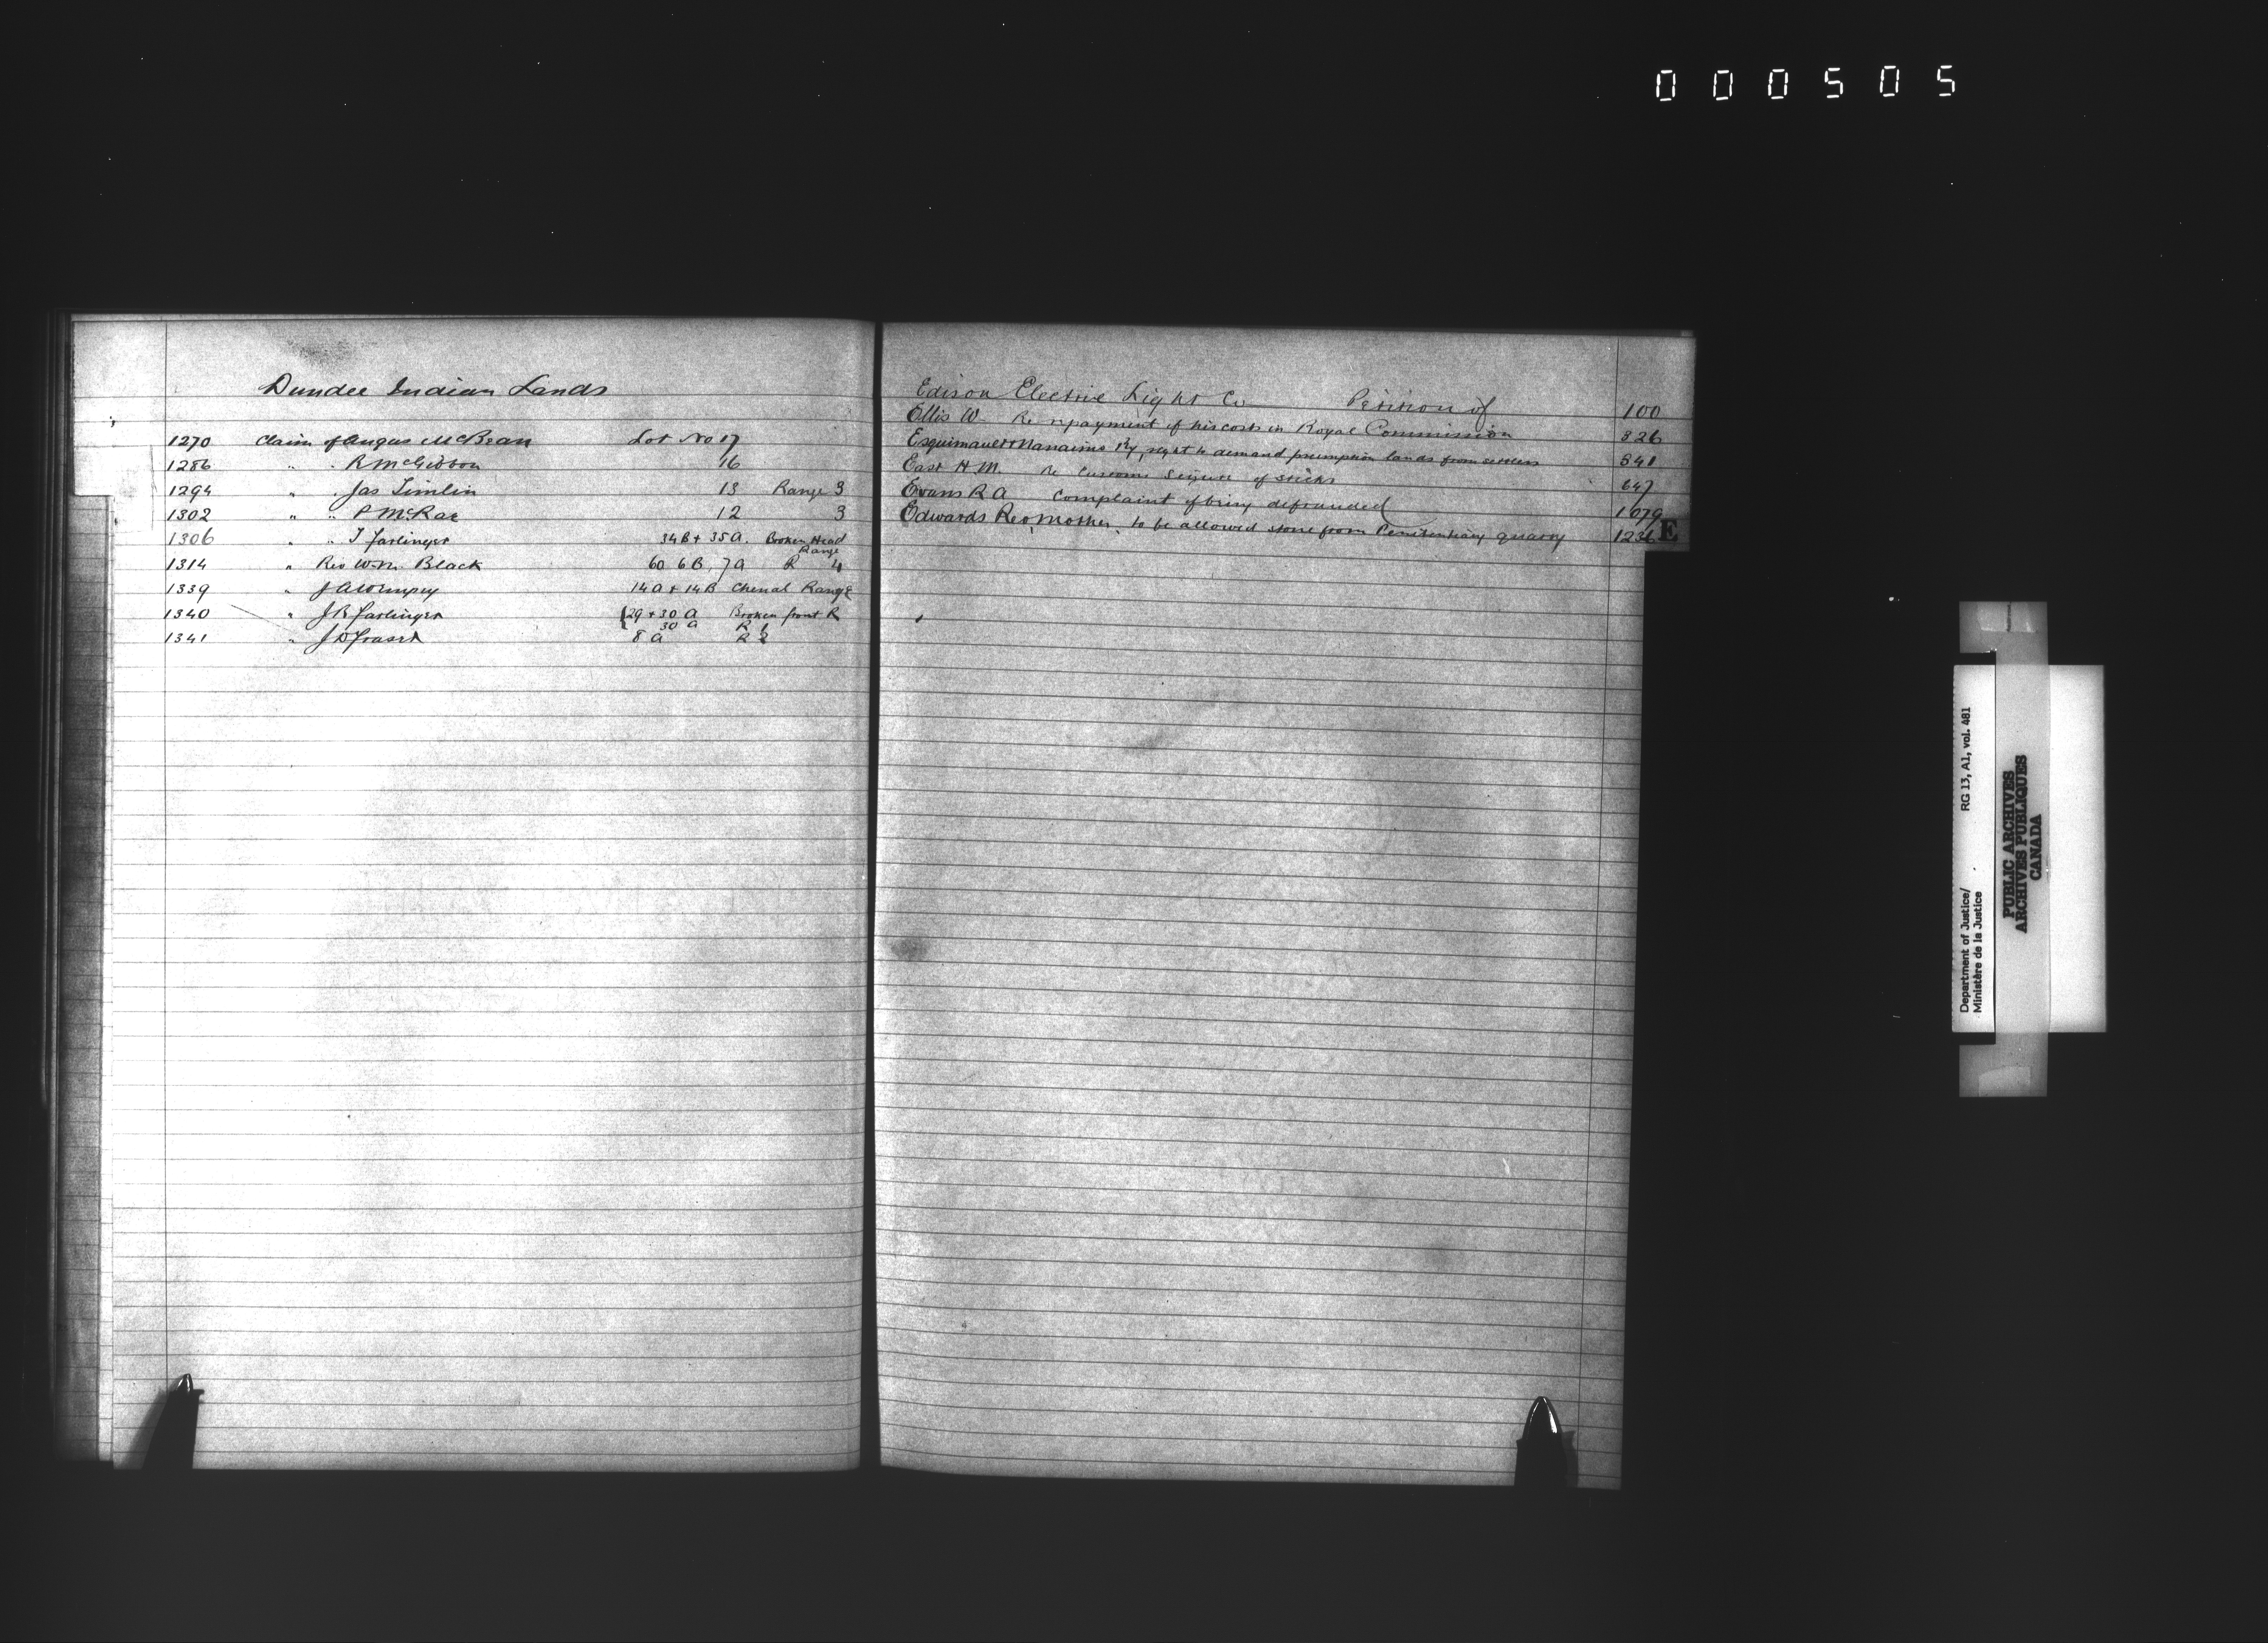 000505
Dundee Indian Lands
1270 Claim of Angus McBean Lot No 17
1286 " " R McGibbon 16
1294 " " Jas Timlin 13 Range 3
1302 " " P McRae 12 3
1306 " " J Farlinger 34B + 35A. Broken Head Range
1314 " Rev Wm. Black 60 6B, 7A R 4
1339 " J A 14A + 14B Chenal Range
1340 " J B Farlinger {29 + 30 A Broken front R
30 A R 1
1341 " J D Fraser 8 A R 2
Edison Electric Light Co Petition of 100
Ellis W. Re repayment of his costs in Royal Commission 326
Esquimault + Nanaimo Ry, right to demand premption lands from settlers 341
East H. M. Re Customs Seizure of sticks 647
Evans R A Complaint of being defrauded 1079
Edwards Rev, Mother, to be allowed stone from Penitentiary quarry 1236
E
Department of Justice/
Ministère de la Justice
RG 13, A1, vol. 481
PUBLIC ARCHIVES
ARCHIVES PUBLIQUES
CANADA